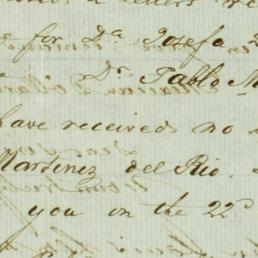 letters
for Da Josefa
Dr. Pablo M
have received no
Martinez del Rio.
you on the 22d